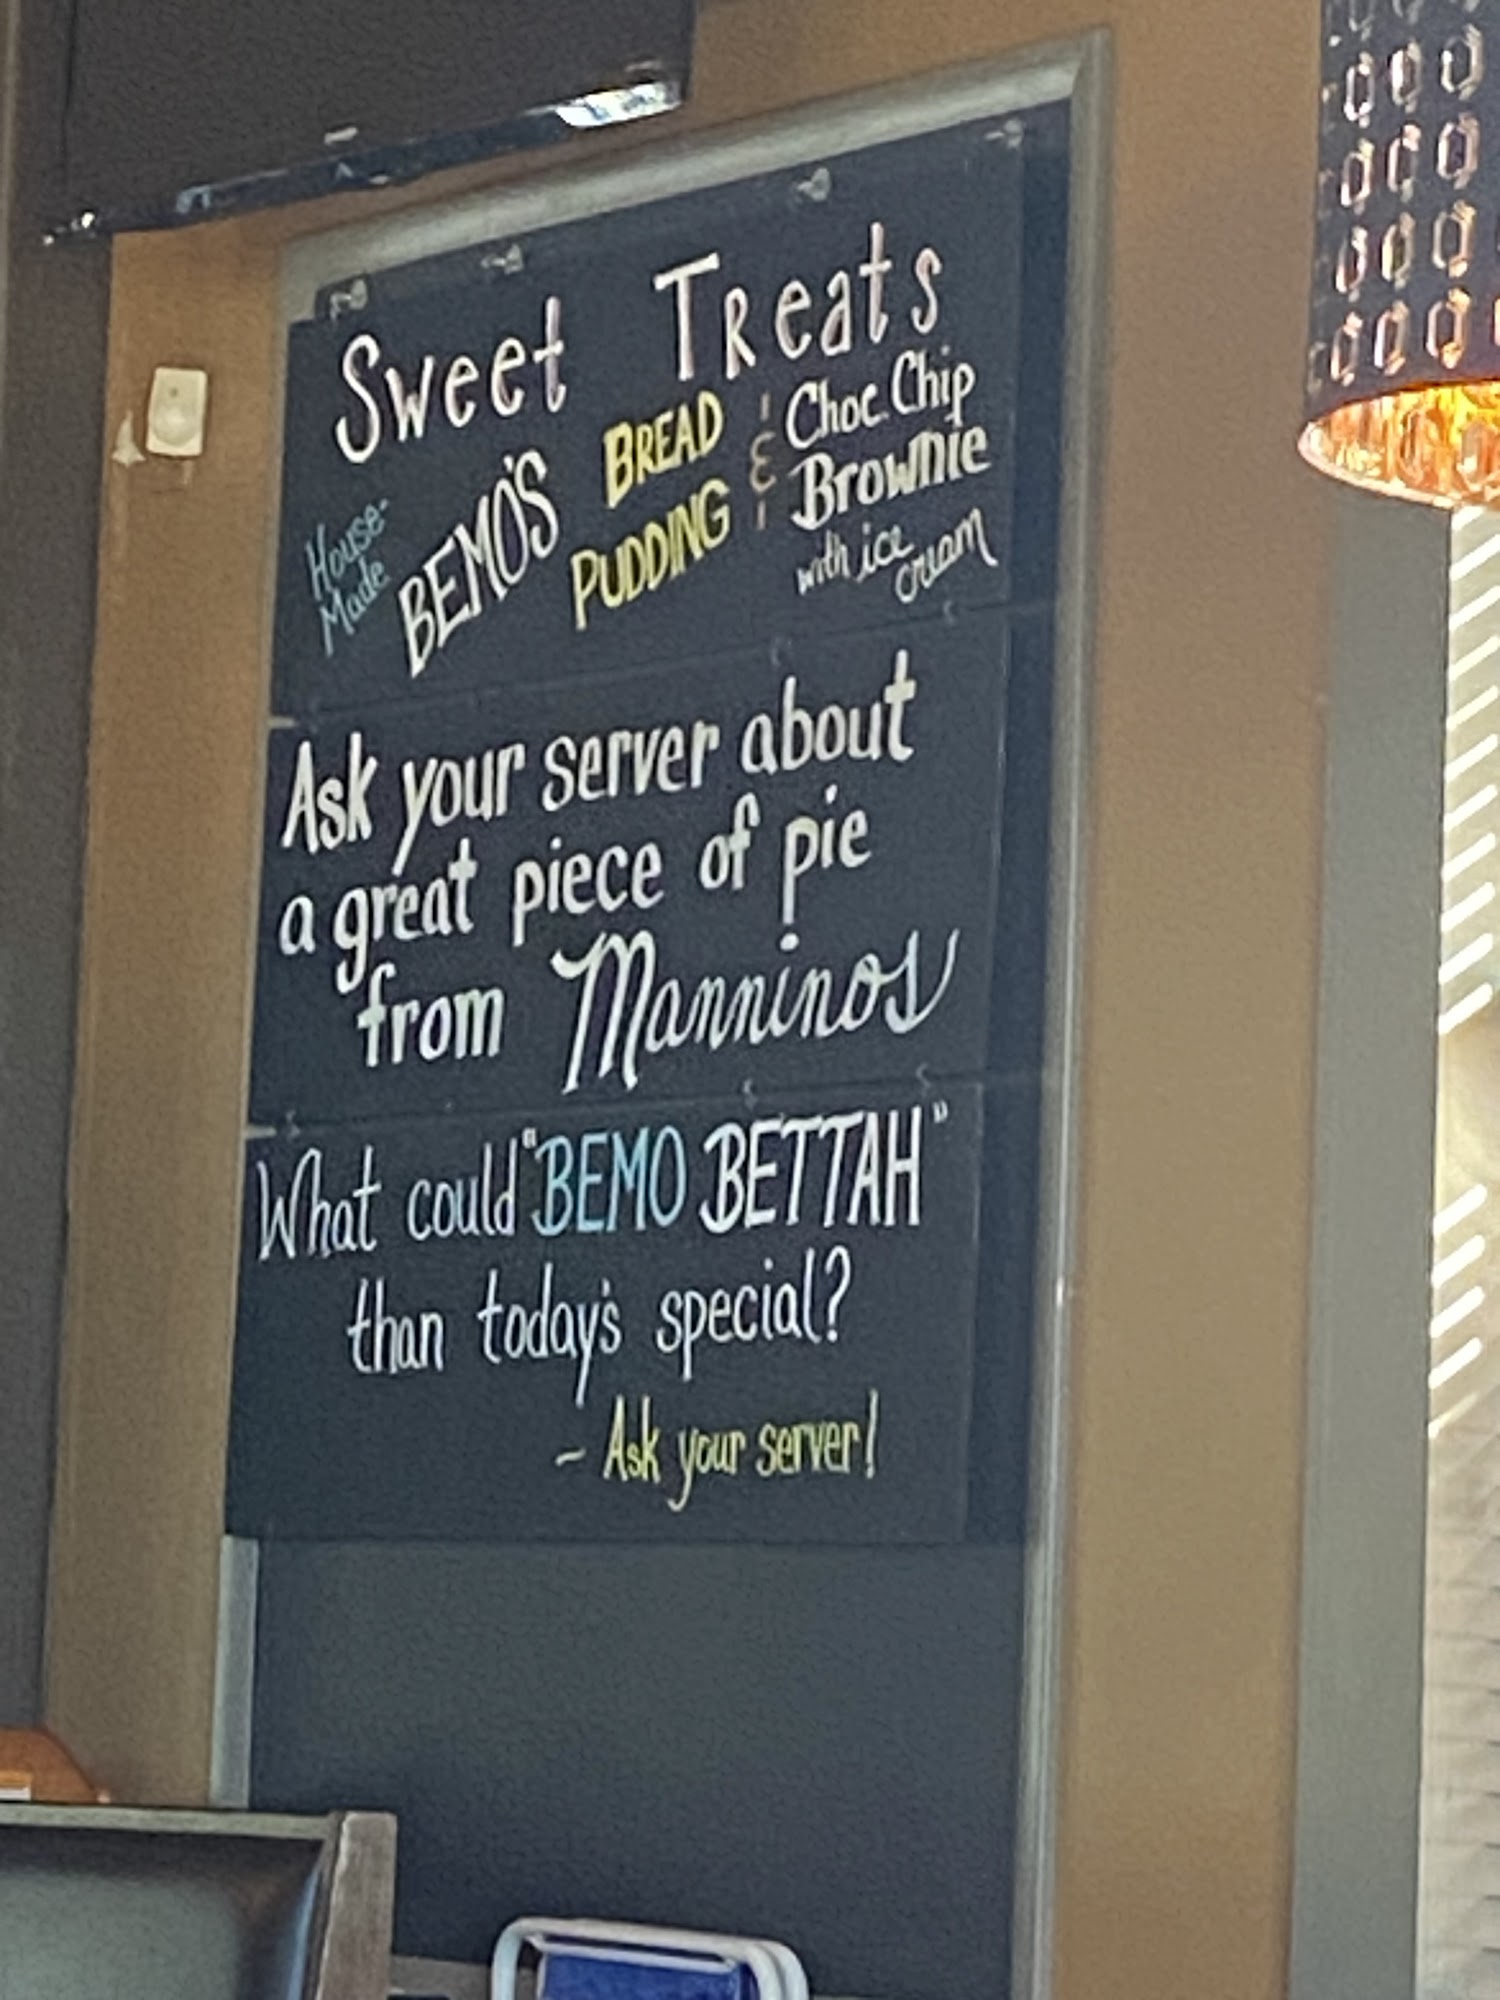 Sweet Treats
House-
Made
BEMO'S
BREAD
PUDDING
&
Choc Chip
Brownie
with ice
cream
Ask your server about
a great piece of pie
from Manninos
What could "BEMO BETTAH"
than today's special?
~ Ask your server!